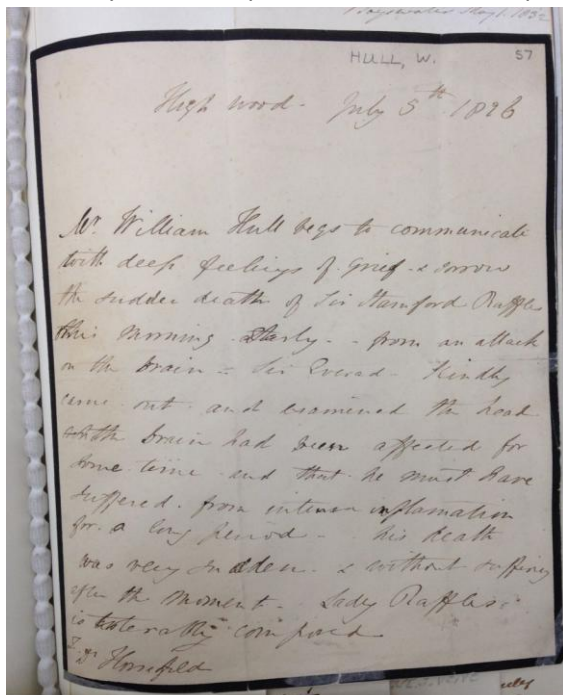 Bayswater May 1. 1832
HULL, W. 57
High wood - July 5th 1826
Mr. William Hull begs to communicate
with deep feelings of Grief & sorrow
the sudden death of Sir Stamford Raffles
this morning Early - from an attack
on the brain - Sir Everad - Kindly
came out and examined the head
the brain had been affected for
some time and that he must have
suffered from intense inflamation
for a long period - his death
was very sudden & without suffering
after the moment - Lady Raffles
is tolerably composed
Dr Horsfield